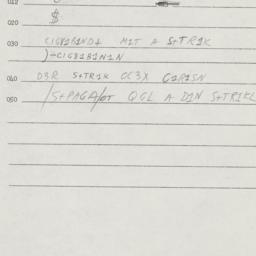 012
020 $
030 CIG81B1ND1 M1T A S+TR1K
)+CIG81B1N1N
040 D3R S+TR1K CC3X C1R1SN
050 /S+PAGA/OT QGL A D1N S+TR1KL